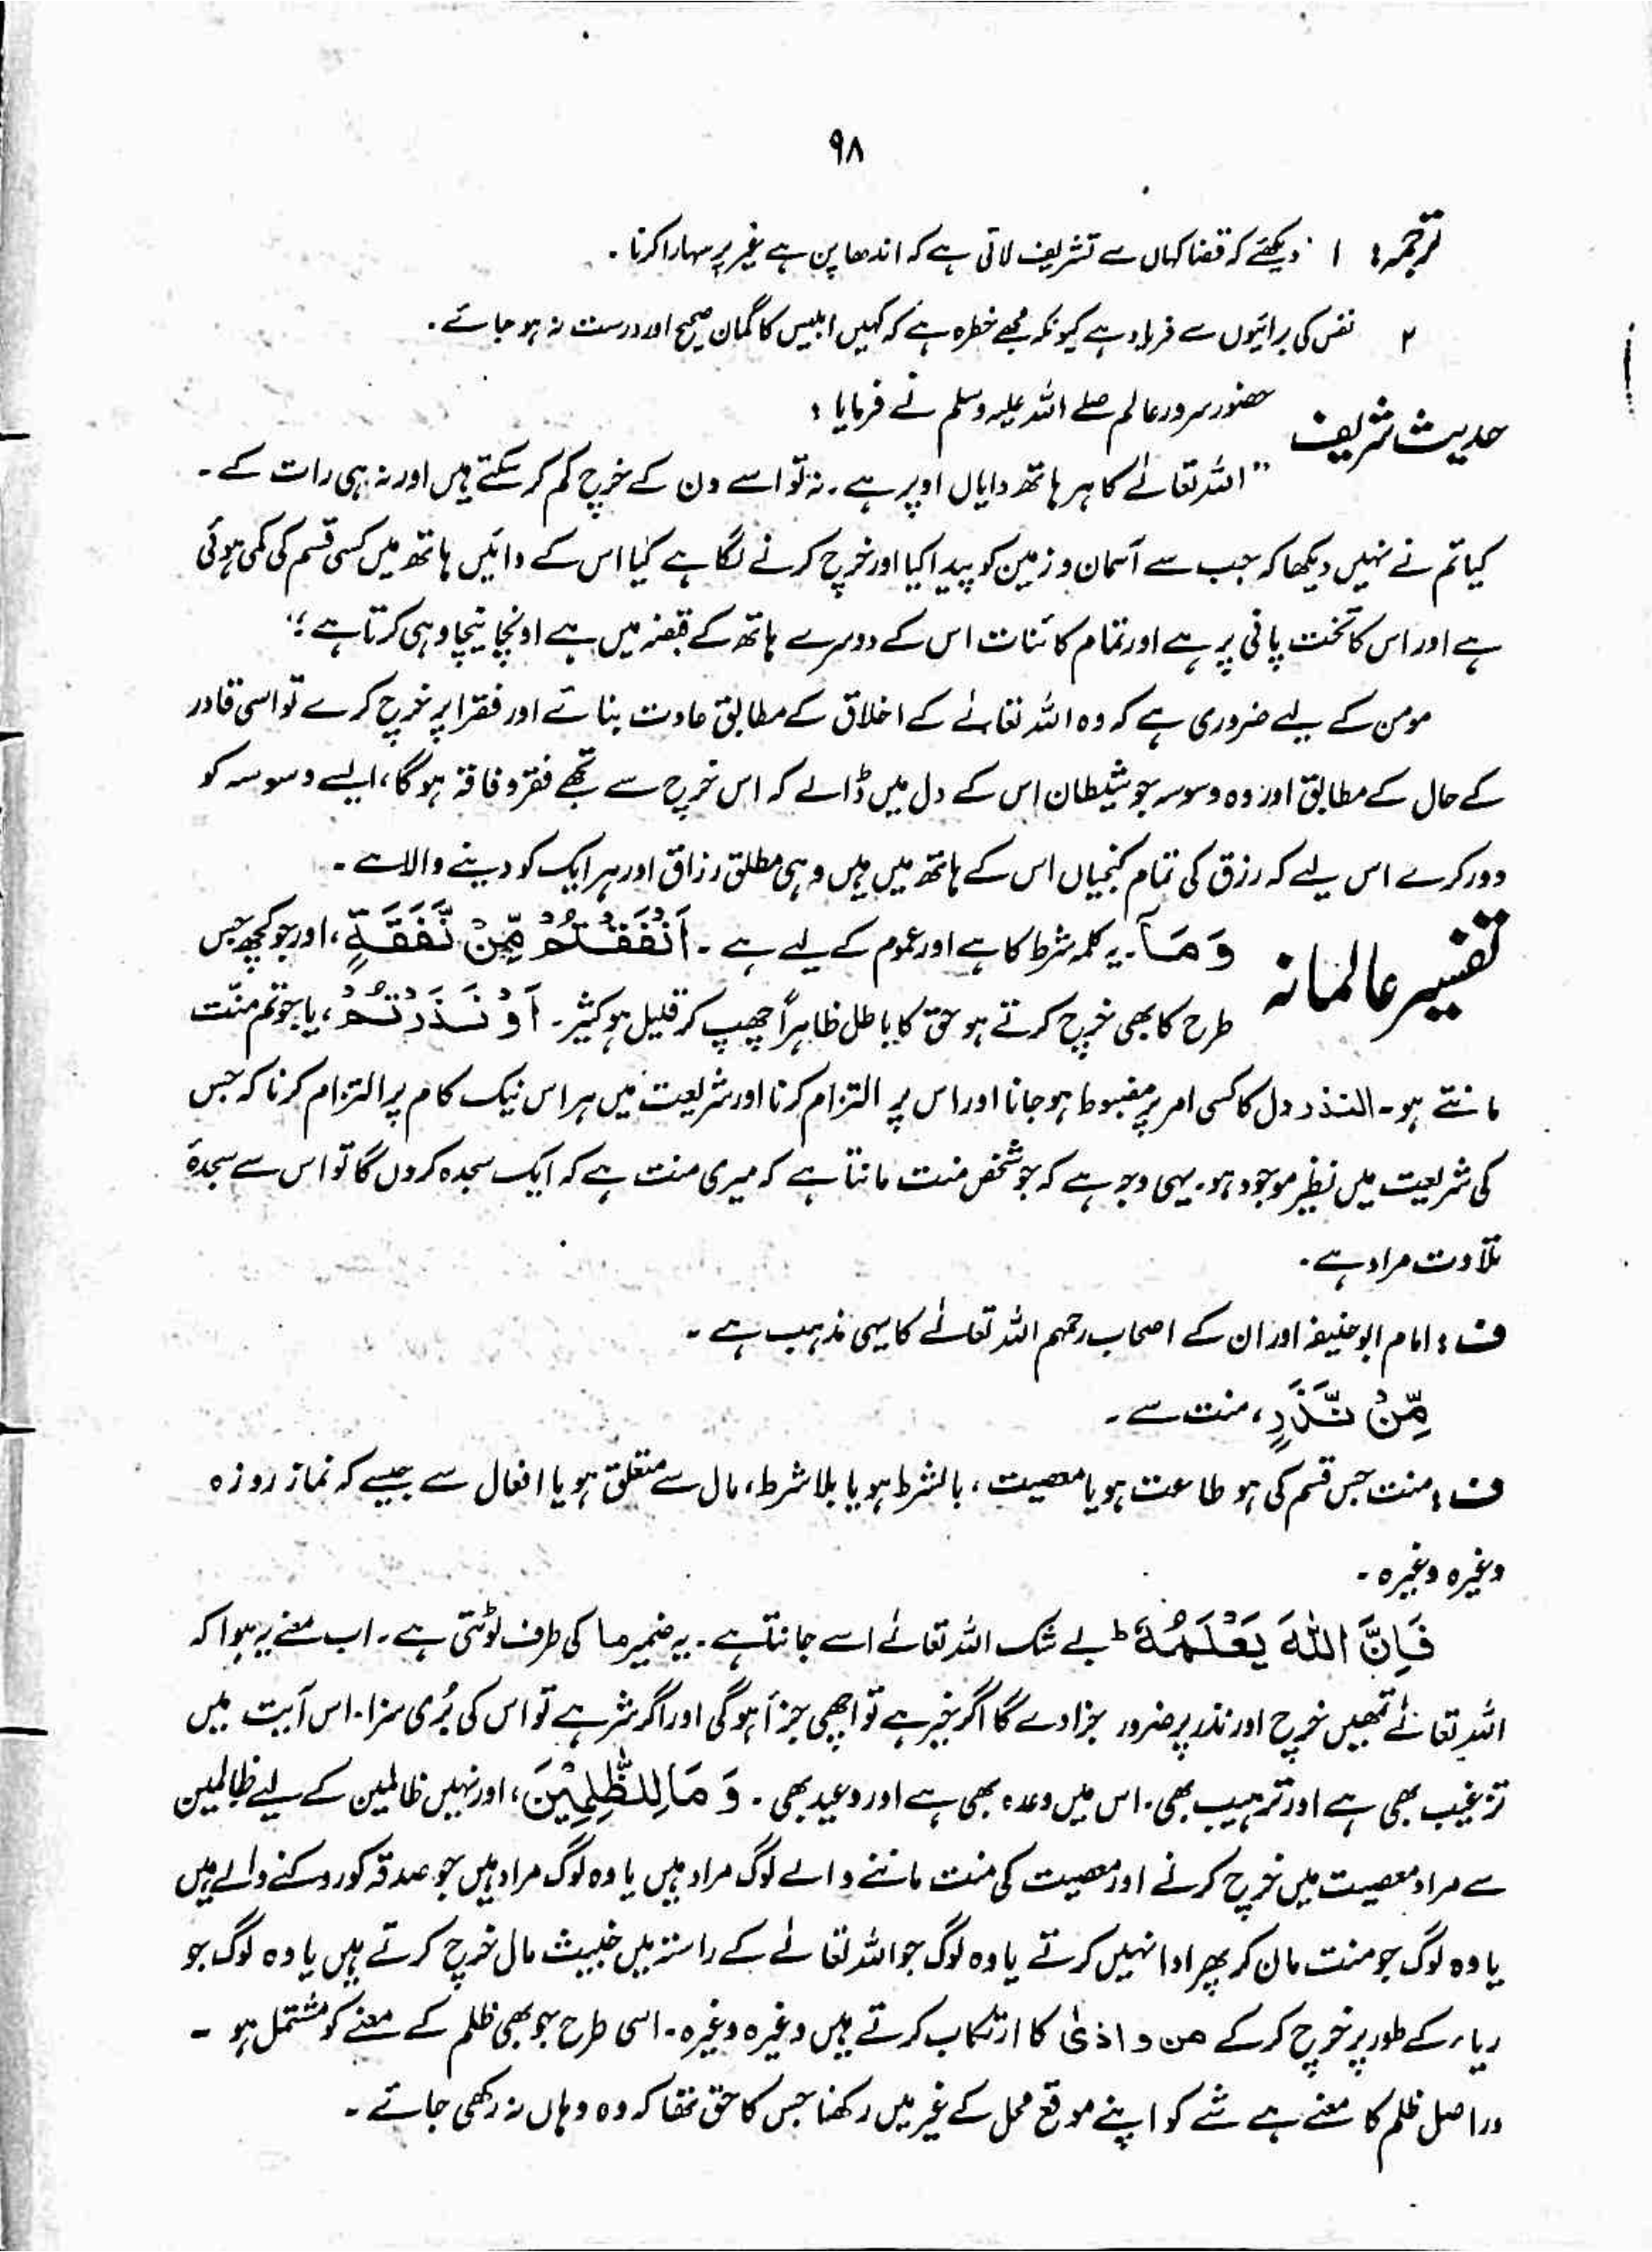 ۹۸
ترجمہ: ۱ دیکھئے کہ قضا کہاں سے تشریف لاتی ہے کہ اندھا پن ہے غیر پر سہارا کرنا ۔
۲ نفس کی برائیوں سے فریاد ہے کیونکہ مجھے خطرہ ہے کہ کہیں ابلیس کا گمان صحیح اور درست نہ ہو جائے ۔
حدیث شریف حضور سرور عالم صلے اللہ علیہ وسلم نے فرمایا :
"اللہ تعالےٰ کا ہر ہاتھ دایاں اوپر ہے ۔ نہ تو اسے دن کے خرچ کم کر سکتے ہیں اور نہ ہی رات کے ۔
کیا تم نے نہیں دیکھا کہ جب سے آسمان و زمین کو پیدا کیا اور خرچ کرنے لگا ہے کیا اس کے دائیں ہاتھ میں کسی قسم کی کمی ہوئی
ہے اور اس کا تخت پانی پر ہے اور تمام کائنات اس کے دوسرے ہاتھ کے قبضہ میں ہے اونچا نیچا وہی کرتا ہے ؛"
مومن کے لیے ضروری ہے کہ وہ اللہ تعالےٰ کے اخلاق کے مطابق عادت بنائے اور فقرا پر خرچ کرے تو اسی قادر
کے حال کے مطابق اور وہ وسوسہ جو شیطان اس کے دل میں ڈالے کہ اس خرچ سے تجھے فقر و فاقہ ہوگا، ایسے وسوسہ کو
دور کرے اس لیے کہ رزق کی تمام کنجیاں اس کے ہاتھ میں ہیں وہی مطلق رزاق اور ہر ایک کو دینے والا ہے ۔
تفسیر عالمانہ وَمَآ ۔ یہ کلمہ شرط کا ہے اور عموم کے لیے ہے ۔ اَنْفَقْتُمْ مِّنْ نَّفَقَةٍ ، اور جو کچھ جس
طرح کا بھی خرچ کرتے ہو حق کا باطل ظاہراً چھپ کر قلیل ہو کثیر ۔ اَوْ نَذَرْتُمْ ، یا جو تم منّت
مانتے ہو ۔ النذر دل کا کسی امر پر مضبوط ہو جانا اور اس پر التزام کرنا اور شریعت میں ہر اس نیک کام پر التزام کرنا کہ جس
کی شریعت میں نظیر موجود ہو ۔ یہی وجہ ہے کہ جو شخص منت مانتا ہے کہ میری منت ہے کہ ایک سجدہ کروں گا تو اس سے سجدۂ
تلاوت مراد ہے ۔
ف : امام ابوحنیفہ اور ان کے اصحاب رحمہم اللہ تعالےٰ کا یہی مذہب ہے ۔
مِّنْ نَّذْرٍ ، منت سے ۔
ف : منت جس قسم کی ہو طاعت ہو یا معصیت ، بالشرط ہو یا بلا شرط ، مال سے متعلق ہو یا افعال سے جیسے کہ نماز روزہ
وغیرہ وغیرہ ۔
فَاِنَّ اللّٰهَ يَعْلَمُهٗ ط بے شک اللہ تعالےٰ اسے جانتا ہے ۔ یہ ضمیر ما کی طرف لوٹتی ہے ۔ اب معنے یہ ہوا کہ
اللہ تعالےٰ تمہیں خرچ اور نذر پر ضرور جزا دے گا اگر خیر ہے تو اچھی جزا ہوگی اور اگر شر ہے تو اس کی بُری سزا ۔ اس آیت میں
ترغیب بھی ہے اور ترہیب بھی ۔ اس میں وعدہ بھی ہے اور وعید بھی ۔ وَمَا لِلظّٰلِمِیْنَ ، اور نہیں ظالمین کے لیے ظالمین
سے مراد معصیت میں خرچ کرنے اور معصیت کی منت ماننے والے لوگ مراد ہیں یا وہ لوگ مراد ہیں جو صدقہ کو روکنے والے ہیں
یا وہ لوگ جو منت مان کر پھر ادا نہیں کرتے یا وہ لوگ جو اللہ تعالےٰ کے راستہ میں خبیث مال خرچ کرتے ہیں یا وہ لوگ جو
ریاء کے طور پر خرچ کر کے من و اذیٰ کا ارتکاب کرتے ہیں وغیرہ وغیرہ ۔ اسی طرح جو بھی ظلم کے معنے کو مشتمل ہو ۔
دراصل ظلم کا معنے ہے شے کو اپنے موقع محل کے غیر میں رکھنا جس کا حق تھا کہ وہ وہاں نہ رکھی جائے ۔